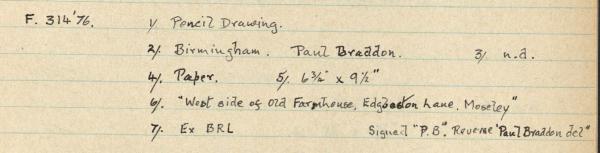 F. 314'76. 1/ Pencil Drawing.
2/ Birmingham. Paul Braddon. 3/ n.d.
4/ Paper. 5/ 6 3/4" x 9 1/2"
6/ "West side of Old Farmhouse, Edgbaston Lane, Moseley"
7/ Ex BRL Signed "P.B". Reverse "Paul Braddon del"